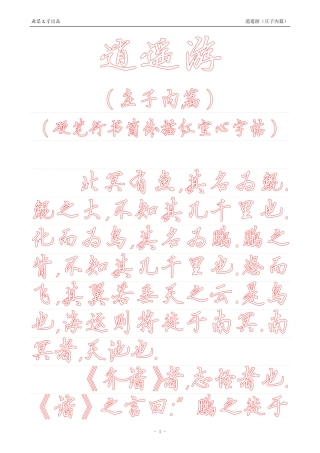 逍遥游（庄子内篇）
逍遥游
（庄子内篇）
（硬笔行书简体描红空心字帖）
北冥有鱼，其名为鲲。
鲲之大，不知其几千里也。
化而为鸟，其名为鹏。鹏之
背，不知其几千里也。怒而
飞，其翼若垂天之云。是鸟
也，海运则将徙于南冥。南
冥者，天池也。
《齐谐》者，志怪者也。
《谐》之言曰：“鹏之徙于
- 1 -